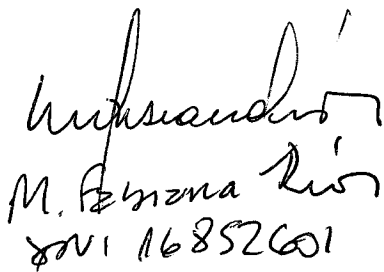 M. Fabiana Ríos
DNI 16852601